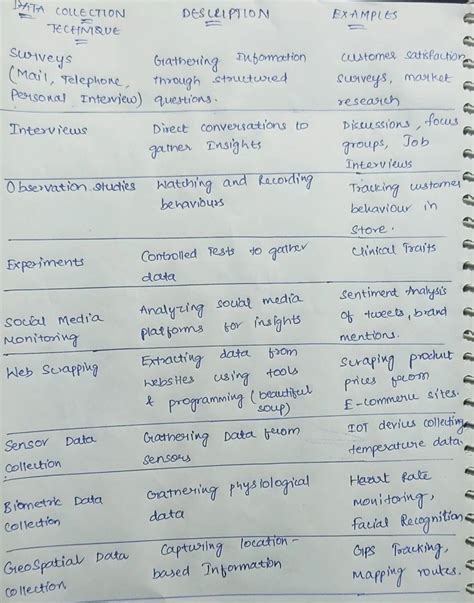 DATA COLLECTION TECHNIQUE | DESCRIPTION | EXAMPLES
Surveys | Gathering Information | customer satisfaction
(Mail, Telephone, | through structured | surveys, market
Personal Interview) | questions. | research
Interviews | Direct conversations to | Discussions, focus
gather Insights | groups, Job
Interviews
Observation studies | Watching and Recording | Tracking customer
behaviours | behaviour in
store.
Experiments | Controlled Tests to gather | Clinical Traits
data
Social Media | Analyzing social media | Sentiment Analysis
Monitoring | platforms for insights | of tweets, brand
mentions.
Web Scrapping | Extracting data from | Scraping product
websites using tools | prices from
& programming (beautiful | E-commerce sites.
soup)
Sensor Data | Gathering Data from | IOT devices collecting
collection | sensors | temperature data
Biometric Data | Gathering physiological | Heart Rate
collection | data | monitoring,
Facial Recognition
GeoSpatial Data | Capturing location- | GPS Tracking,
collection | based Information | Mapping routes.